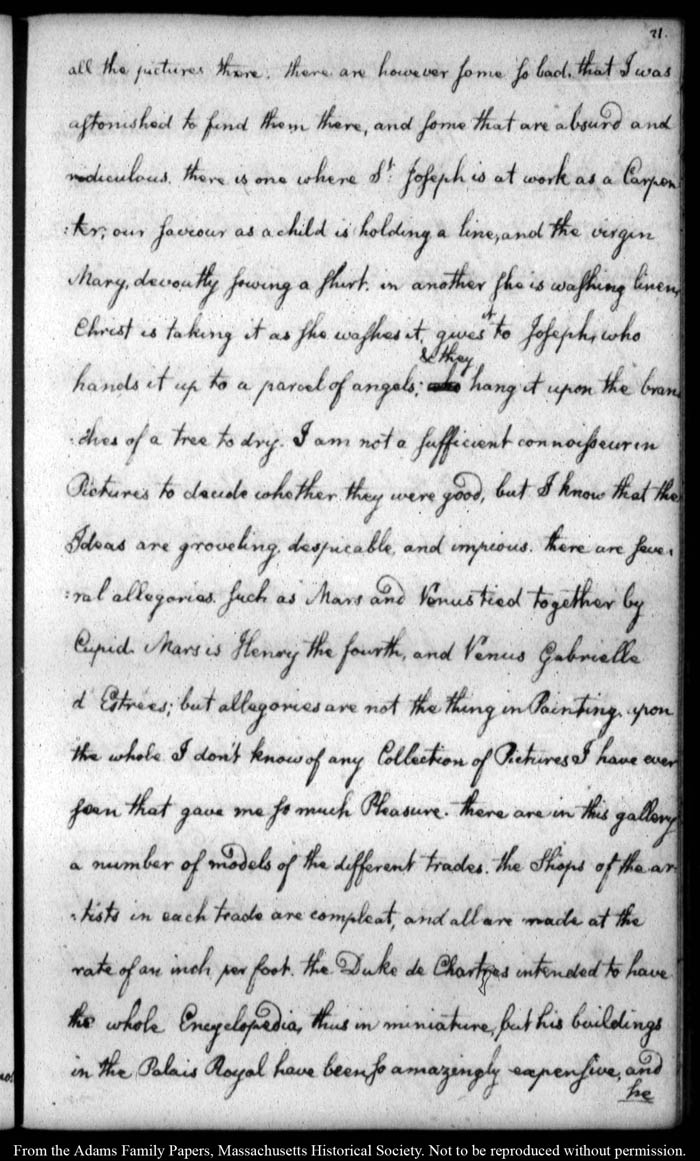 21.
all the pictures there. there are however some so bad, that I was
astonished to find them there, and some that are absurd and
rediculous. there is one where St. Joseph is at work as a Carpen
:ter; our saviour as a child is holding a line, and the virgin
Mary, devoutly sowing a shirt. in another she is washing linen,
Christ is taking it as she washes it, gives it to Joseph, who
hands it up to a parcel of angels; & they hang it upon the bran
:ches of a tree to dry. I am not a sufficient connoisseur in
Pictures to decide whether they were good, but I know that the
Ideas are groveling, despicable, and impious. there are seve:
:ral allegories. such as Mars and Venus tied together by
Cupid. Mars is Henry the fourth, and Venus Gabrielle
d'Estrees; but allegories are not the thing in Painting. upon
the whole I don't know of any Collection of Pictures I have ever
seen that gave me so much Pleasure. there are in this gallery
a number of models of the different trades. the Shops of the ar:
:tists in each trade are compleat, and all are made at the
rate of an inch per foot. the Duke de Chartres intended to have
the whole Encyclopedia, thus in miniature, but his buildings
in the Palais Royal have been so amazingly expensive, and
he
From the Adams Family Papers, Massachusetts Historical Society. Not to be reproduced without permission.